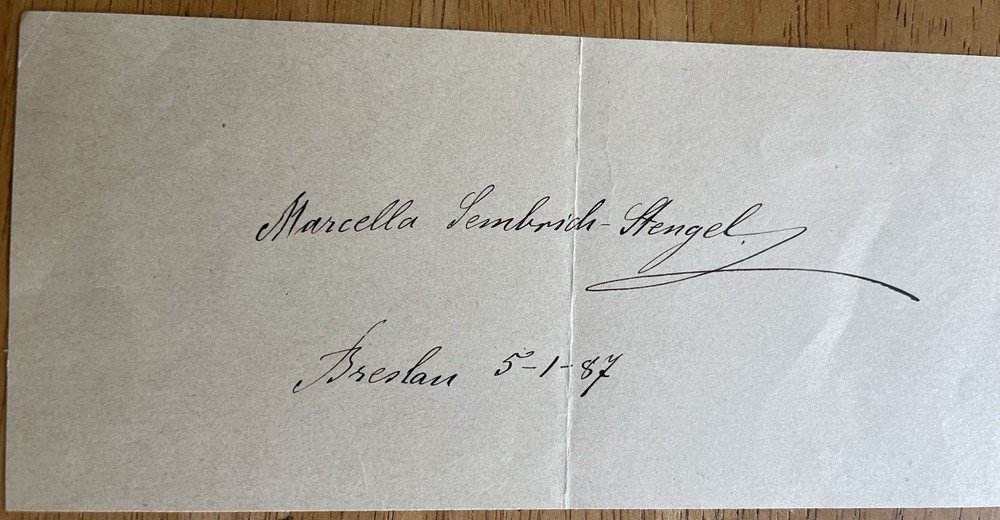 Marcella Sembrich-Stengel.
Breslau 5-1-87